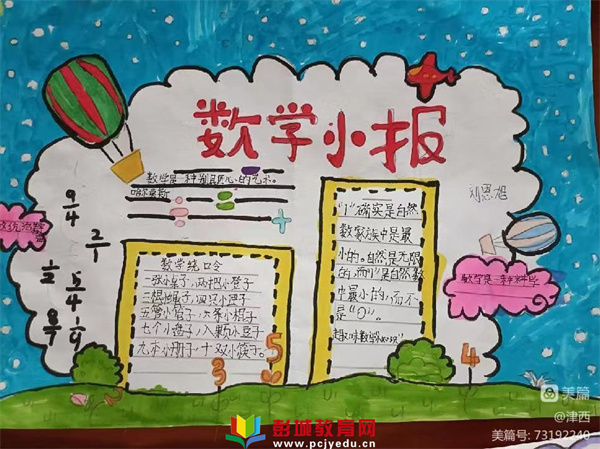 数学小报
刘恩旭
数学是一种别具匠心的艺术。
哈尔莫斯
9/4
2/1
1/2
5/4
8/7
1/9
数学绕口令
一张小桌子,两把小凳子
五管小笛子,六条小棍子
七个小兜子,八颗小豆子
九本小册子,十双小筷子。
"1"确实是自然
数家族中是最
小的。自然是无限
的,而"1"是自然数
中最小的,而不
是"0"。
数学是一种科学
3
5
4
美篇
@津西
美篇号: 73192240
彭城教育网
www.pcjyedu.cn